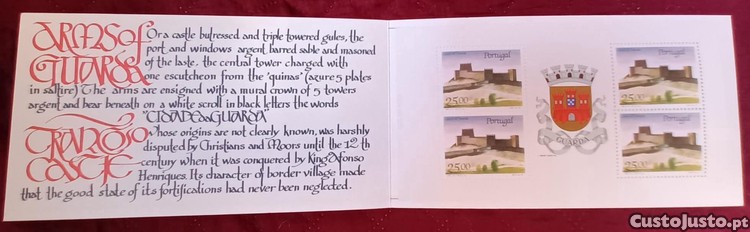 ARMS of
GUARDA
Or a castle butressed and triple towered gules, the
port and windows argent barred sable and masoned
of the laste, the central tower charged with
one escutcheon from the "quinas" (azure 5 plates
in saltire) The arms are ensigned with a mural crown of 5 towers
argent and bear beneath on a white scroll in black letters the words
"CIDADE DA GUARDA"
TRANCOSO
CASTLE
Whose origins are not clearly known, was harshly
disputed by Christians and Moors until the 12 th
century when it was conquered by King Afonso
Henriques. Its character of border village made
that the good state of its fortifications had never been neglected.
Portugal
25.00
Portugal
25.00
Portugal
25.00
Portugal
25.00
GUARDA
CustoJusto.pt